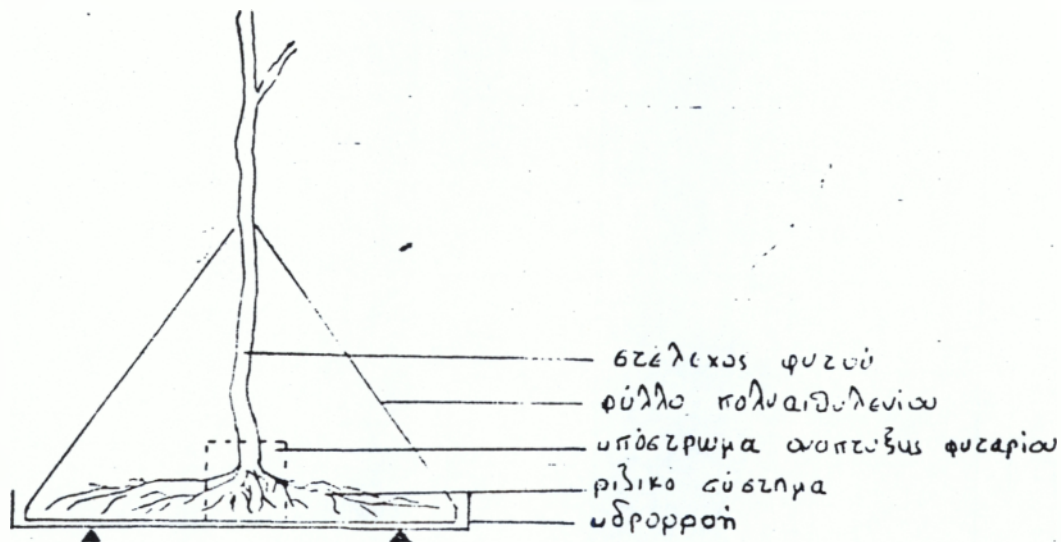 στέλεχος φυτού
φύλλο πολυαιθυλενίου
υπόστρωμα αναπτυξης φυταρίου
ριζικό σύστημα
υδρορροή